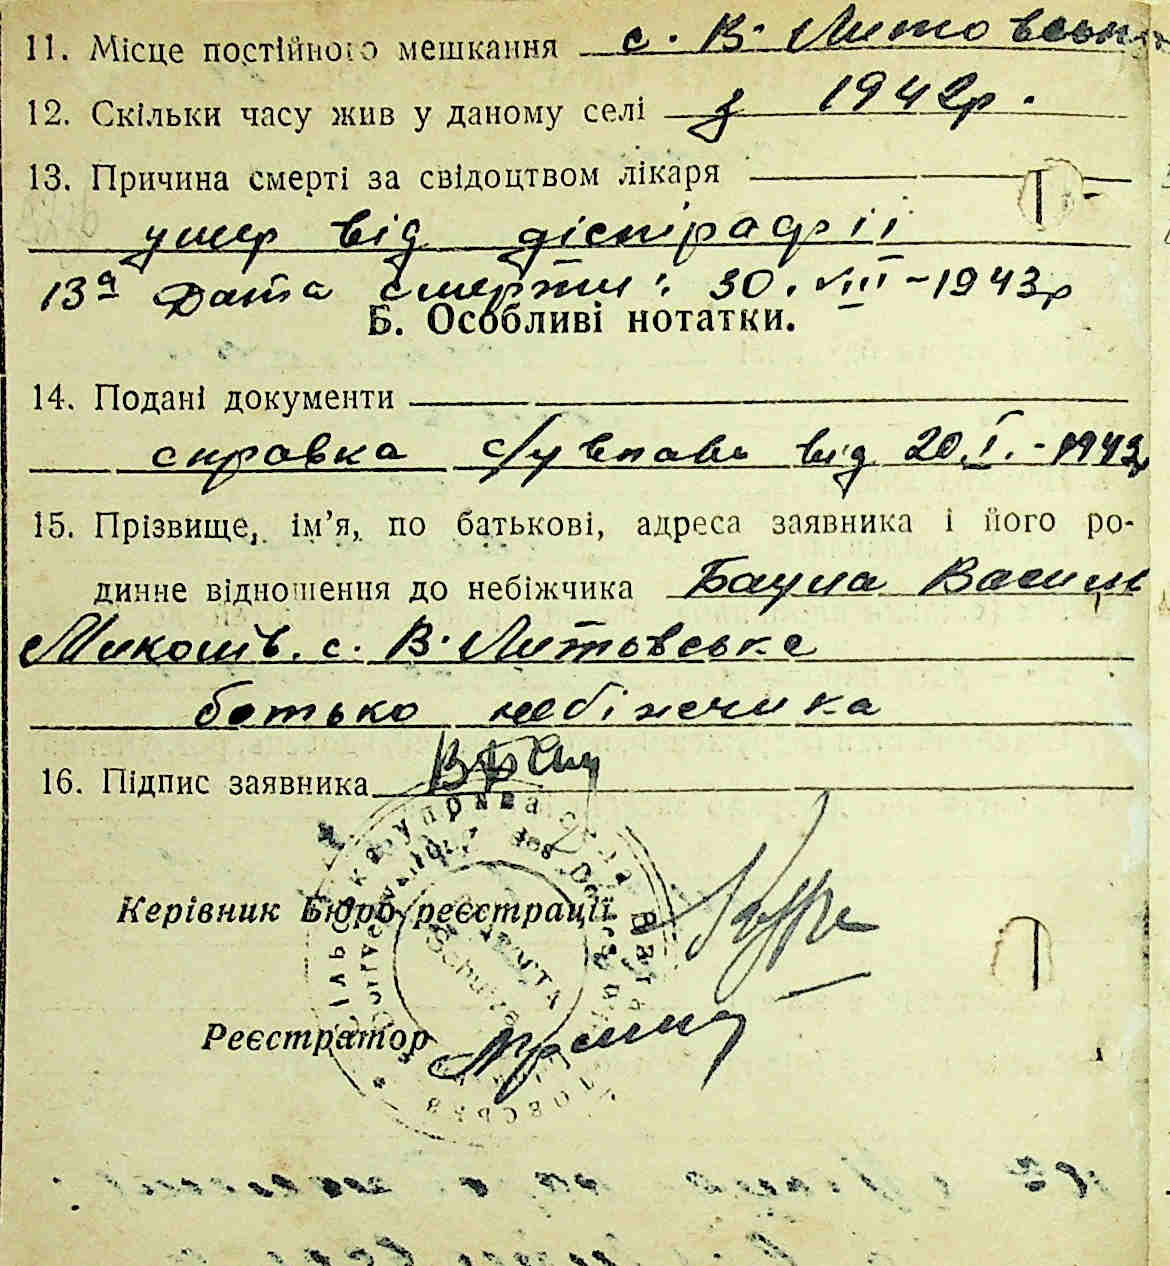 11. Місце постійного мешкання с. В. Литовськ
12. Скільки часу жив у даному селі з 1942р.
13. Причина смерті за свідоцтвом лікаря
умер від
13а Дата смерти: 30. VIII - 1943р
Б. Особливі нотатки.
14. Подані документи
справка с/управи від 20.I. - 1943р
15. Прізвище, ім’я, по батькові, адреса заявника і його ро-
динне відношення до небіжчика Баула Василь
Миколів. с. В. Литовське
батько небіжчика
16. Підпис заявника
Керівник Бюро реєстрації
Реєстратор